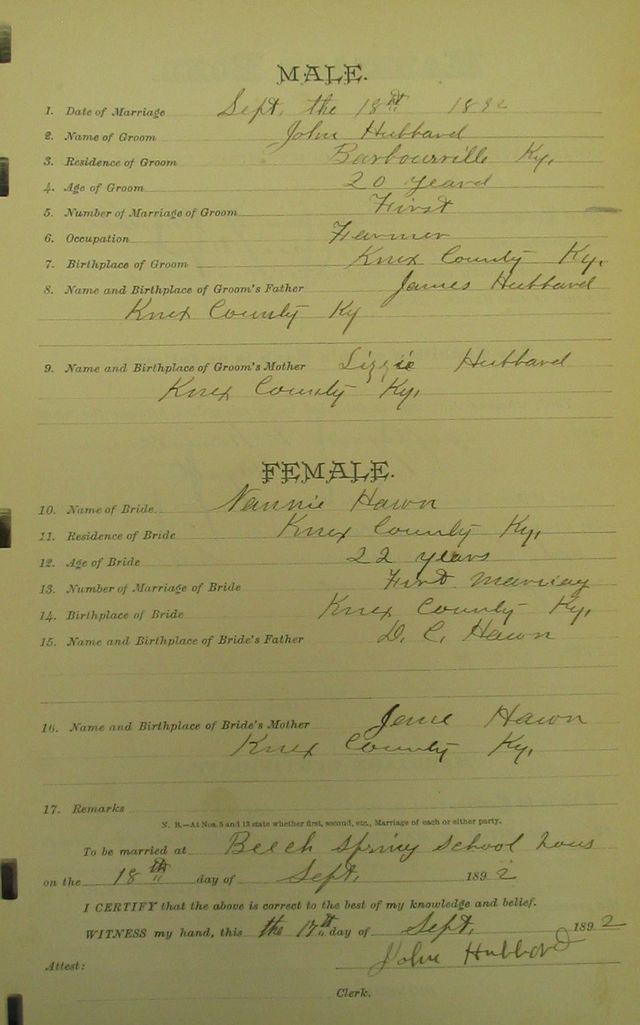 MALE.
1. Date of Marriage Sept. the 18th 1892
2. Name of Groom John Hubbard
3. Residence of Groom Barbourville Ky.
4. Age of Groom 20 yeard
5. Number of Marriage of Groom First
6. Occupation Farmer
7. Birthplace of Groom Knox County Ky.
8. Name and Birthplace of Groom's Father James Hubbard
Knox County Ky
9. Name and Birthplace of Groom's Mother Lizzie Hubbard
Knox County Ky.
FEMALE.
10. Name of Bride Nannie Hawn
11. Residence of Bride Knox County Ky.
12. Age of Bride 22 years
13. Number of Marriage of Bride First Marriag
14. Birthplace of Bride Knox County Ky.
15. Name and Birthplace of Bride's Father D. C. Hawn
16. Name and Birthplace of Bride's Mother Jane Hawn
Knox County Ky.
17. Remarks
N. B.—At Nos. 5 and 13 state whether first, second, etc., Marriage of each or either party.
To be married at Beech Spring School hous
on the 18th day of Sept. 1892
I CERTIFY that the above is correct to the best of my knowledge and belief.
WITNESS my hand, this the 17th day of Sept. 1892
John Hubbard
Attest:
Clerk.